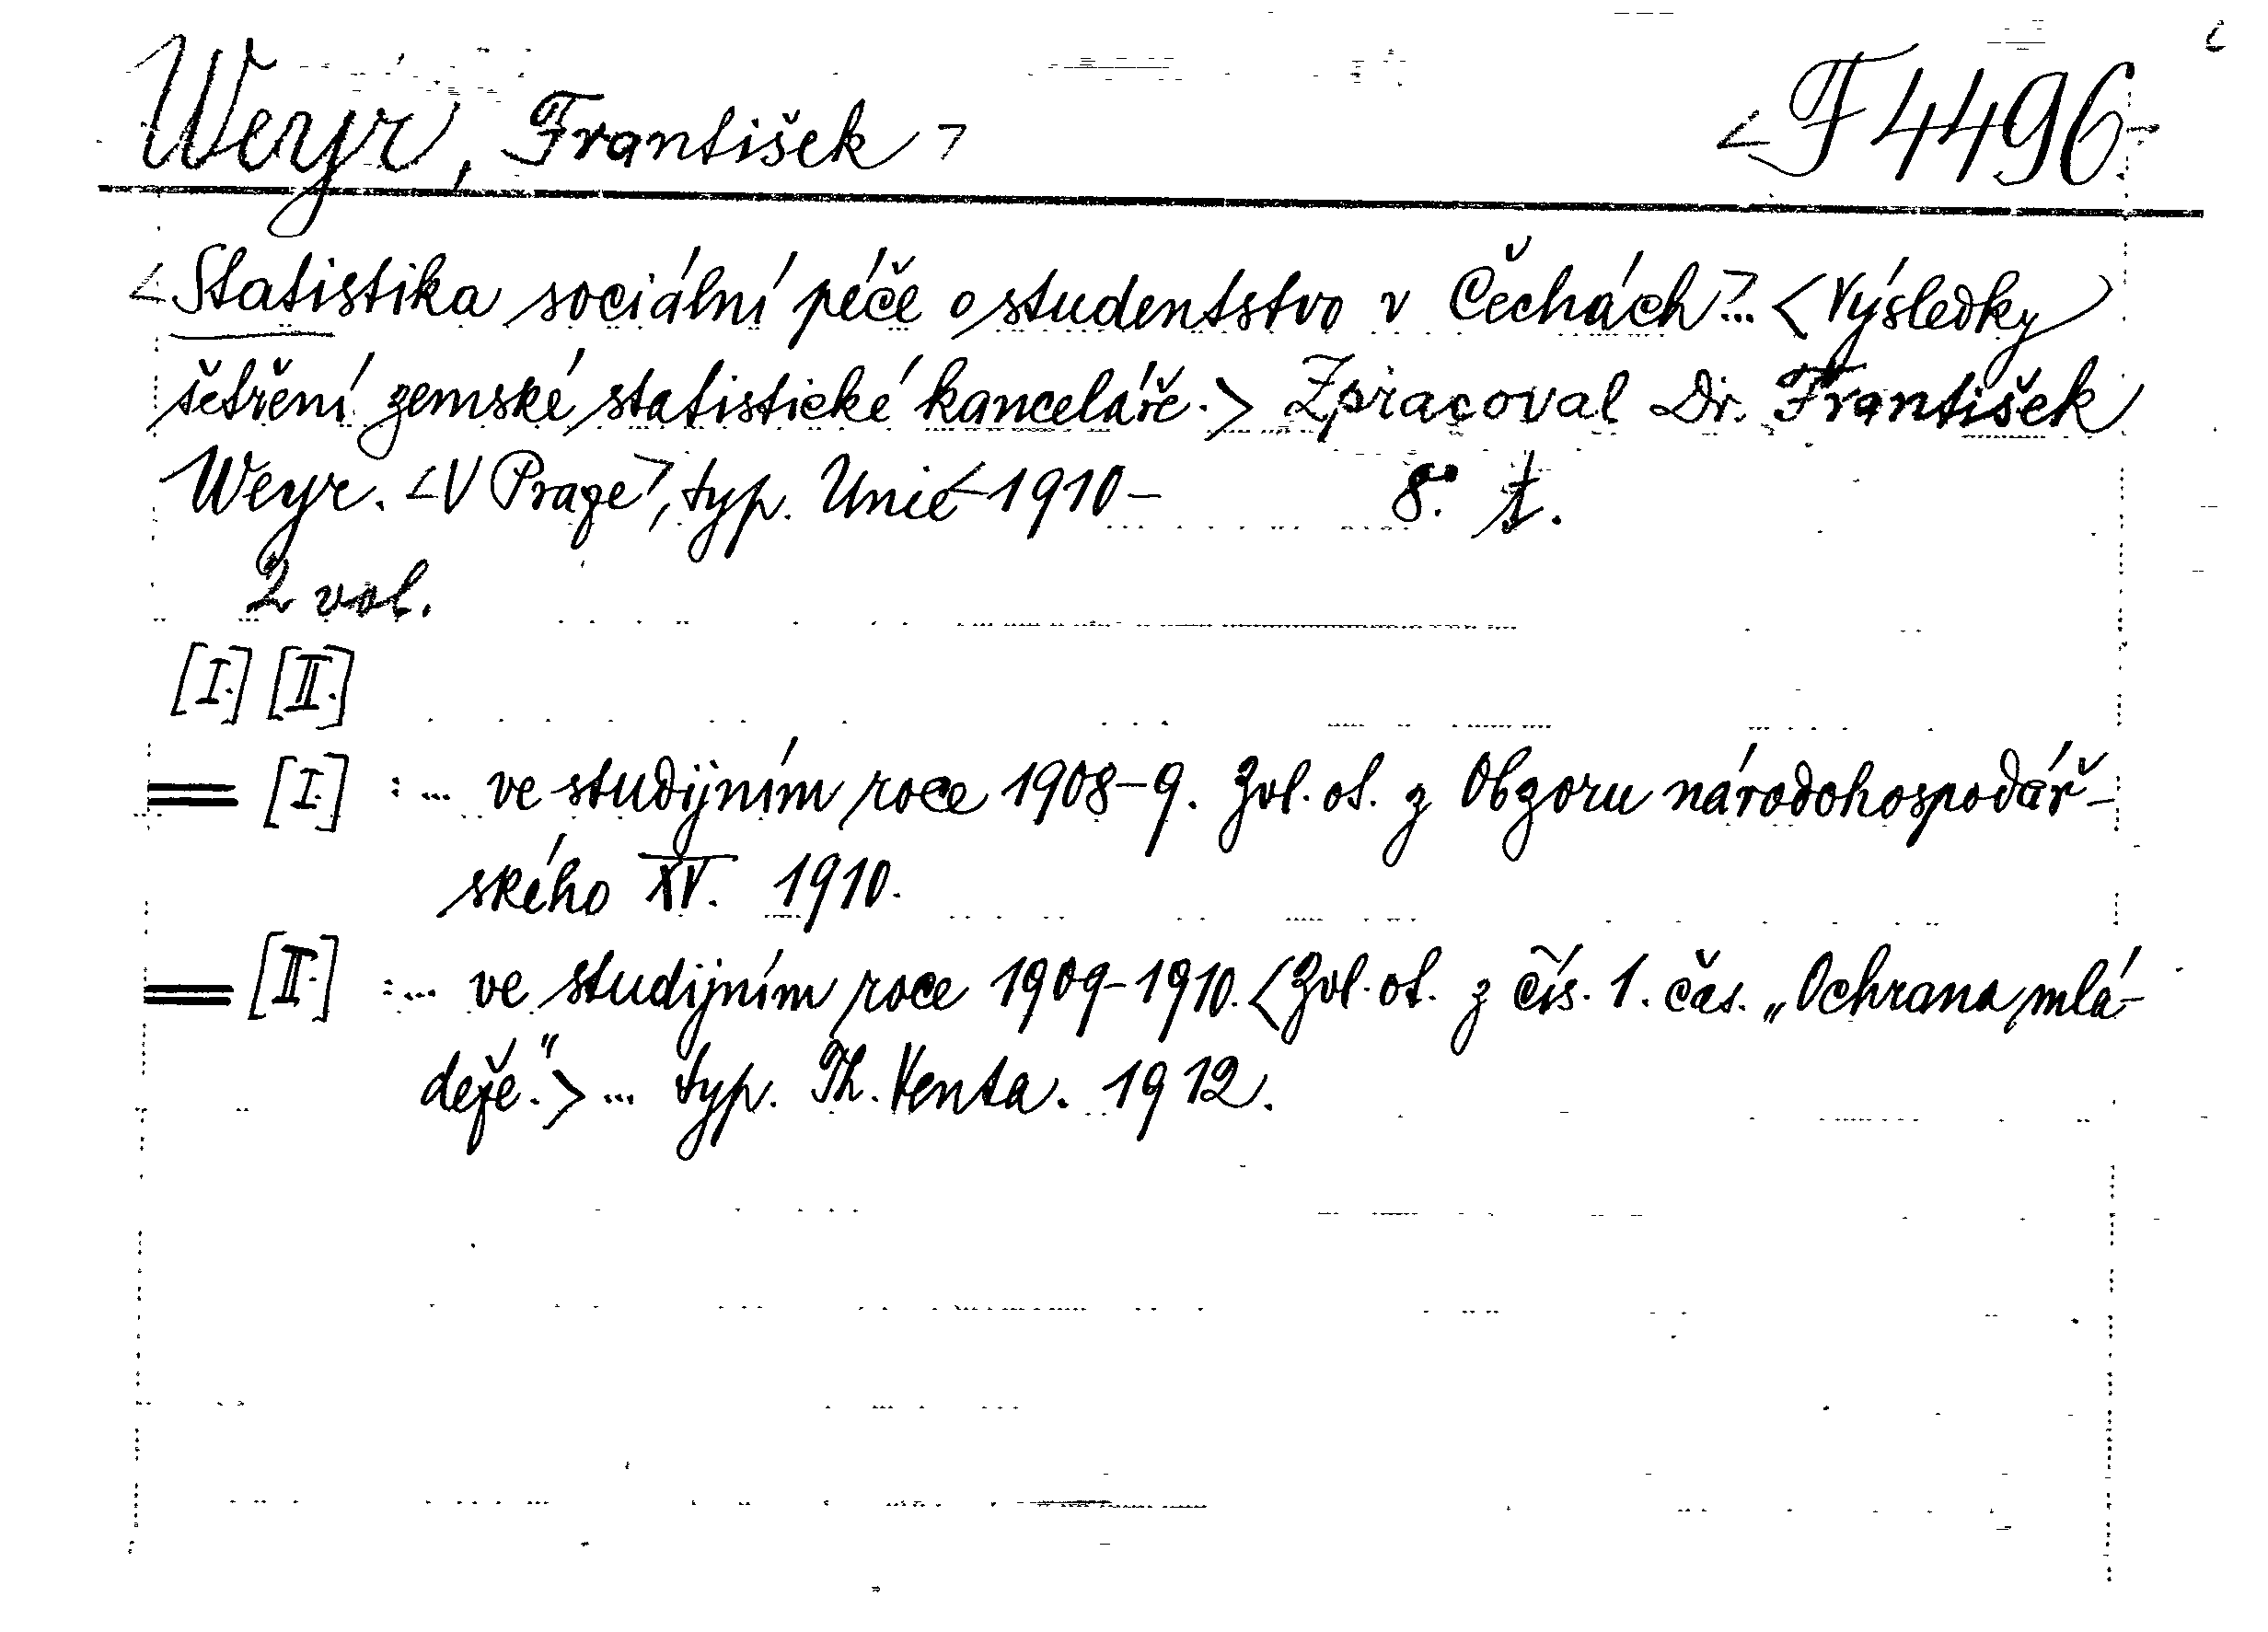 Weyr, František > < F 4496
<Statistika sociální péče o studentstvo v Čechách>... <Výsledky
šetření zemské statistické kanceláře.> Zpracoval Dr. František
Weyr. <V Praze>, typ. Unie <1910- 8°. t.
2 vol.
[I.] [II.]
= [I.] : ... ve studijním roce 1908-9. Zvl. ot. z Obzoru národohospodář-
ského XV. 1910.
= [II.] : ... ve studijním roce 1909-1910. <Zvl. ot. z čís. 1. čas. „Ochrana mlá-
deže.“> ... typ. Th. Venta. 1912.